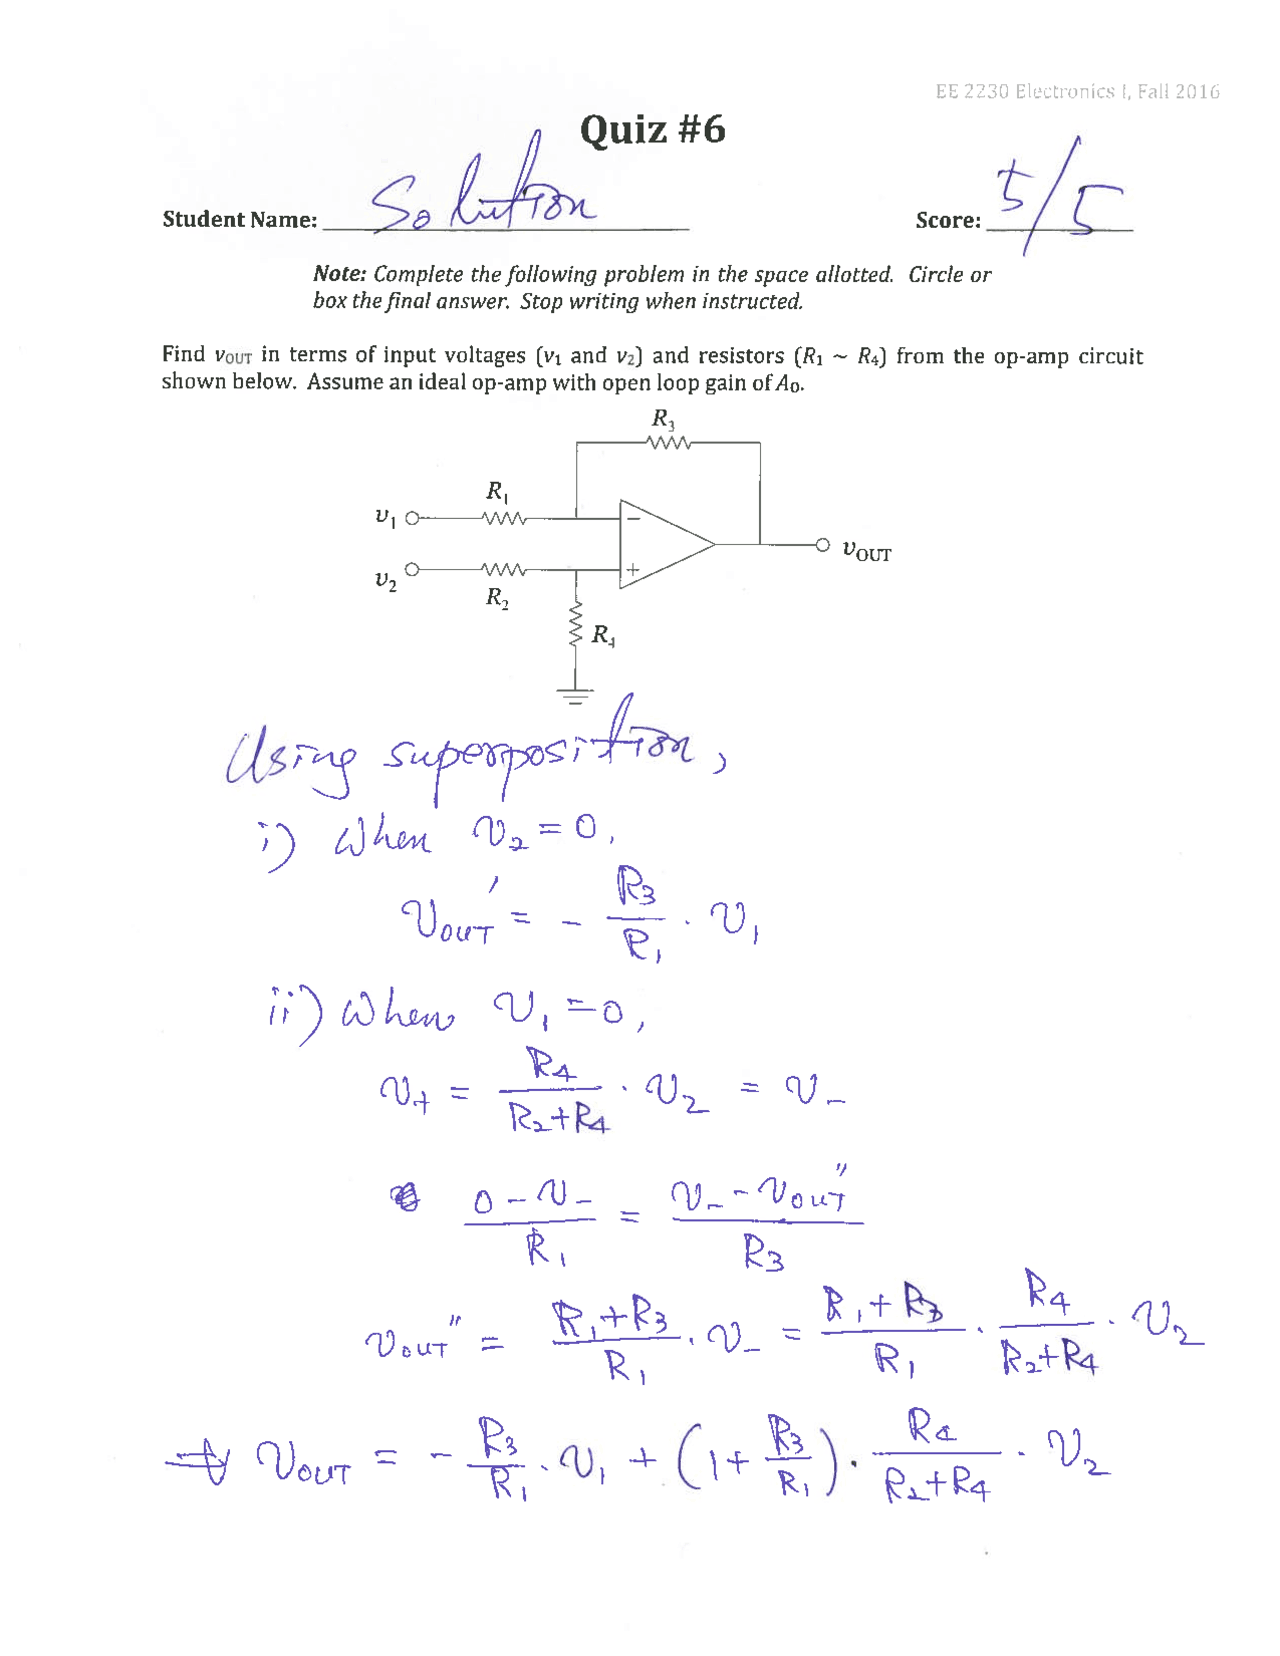 EE 2230 Electronics I, Fall 2016
Quiz #6
Student Name: Solution
Score: 5/5
Note: Complete the following problem in the space allotted. Circle or
box the final answer. Stop writing when instructed.
Find vOUT in terms of input voltages (v1 and v2) and resistors (R1 ~ R4) from the op-amp circuit
shown below. Assume an ideal op-amp with open loop gain of A0.
R3
R1
v1
−
vOUT
+
v2
R2
R4
Using superposition,
i) When v2 = 0,
vOUT' = - R3/R1 · v1
ii) When v1 = 0,
v+ = R4/(R2+R4) · v2 = v-
(0 - v-)/R1 = (v- - vOUT")/R3
vOUT" = (R1+R3)/R1 · v- = (R1+R3)/R1 · R4/(R2+R4) · v2
vOUT = - R3/R1 · v1 + (1 + R3/R1) · R4/(R2+R4) · v2